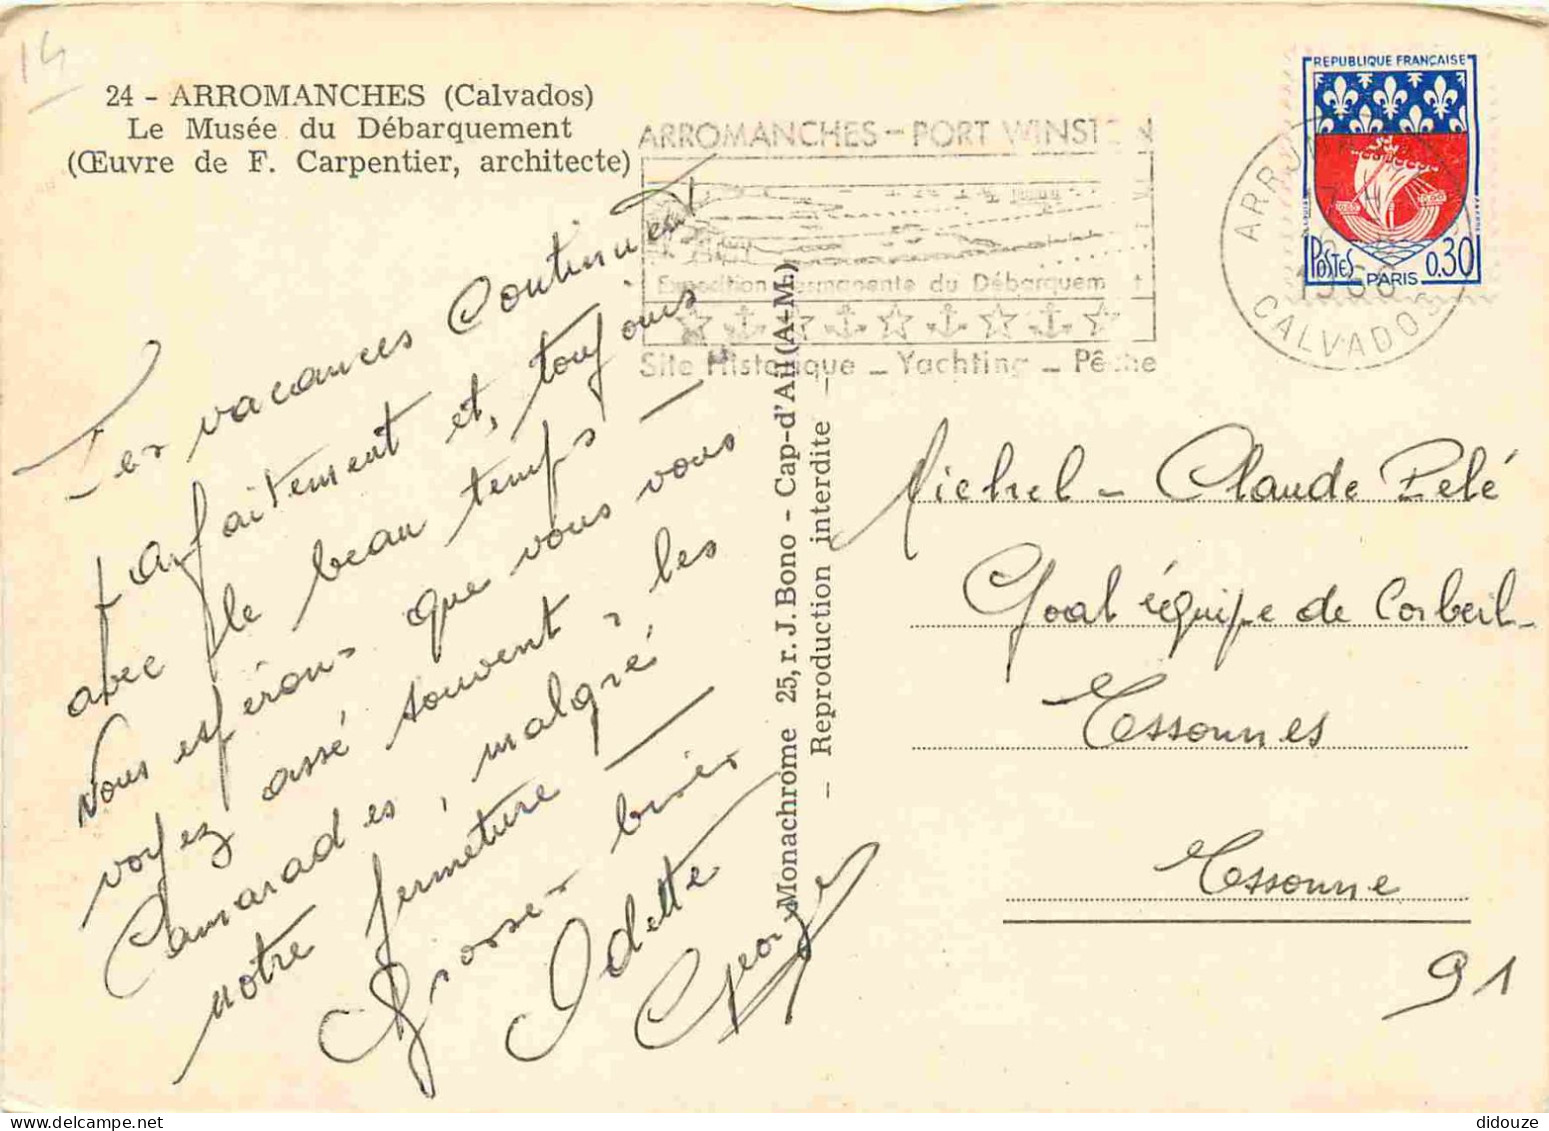 14
24 - ARROMANCHES (Calvados)
Le Musée du Débarquement
(Œuvre de F. Carpentier, architecte)
ARROMANCHES - PORT WINSTON
Exposition Permanente du Débarquement
Site Historique - Yachting - Pêche
REPUBLIQUE FRANÇAISE
POSTES
PARIS
0.30
ARROMANCHES
CALVADOS
Les vacances Continuent
parfaitement et, toujours
avec le beau temps -
Nous espérons que vous vous
voyez assé souvent, les
Camarades, malgré
notre fermeture -
Grosses bises
Odette
George
Monachrome 25, r. J. Bono - Cap-d'Ail (A-M.)
- Reproduction interdite -
Michel - Claude Pelé
Goal équipe de Corbeil-
Essonnes
Essonne
91
didouze